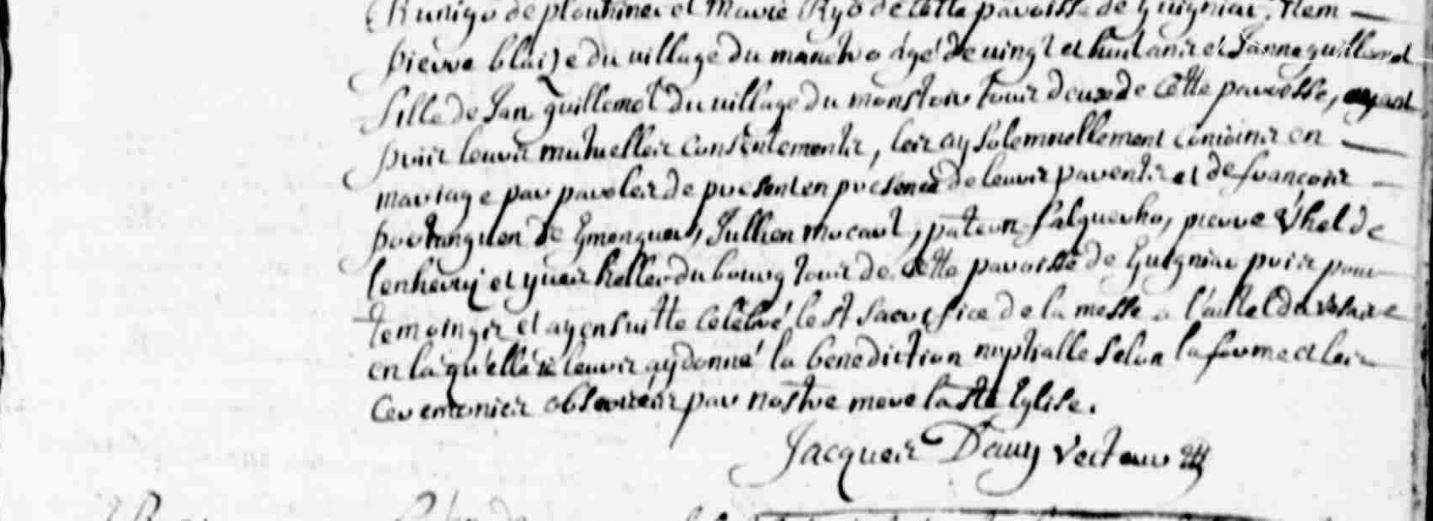 de plouhinec et Marie Ryo de cette paroisse de Guigniac. Item
pierre blaize du village du manehro âgé de vingt et huit anis et Janne guillemot
fille de Jan guillemot du village du monstoir touis deux de cette paroisse, ayant
pris leuris mutuelleis consentementis, leis ay solemnellement conioinis en
mariage par paroleis de present en presence de leuris parentis et de françois
portanguen de , Jullien mocart, patern falquerho, pierre Uhel de
lenhevry et yveis du bourg touis de cette paroisse de Guigniac pris pour
temoingis et ay ensuitte celebré le st sacrifice de la messe a l'autel du rosaire
en la qu'elle je leuris ay donné la benediction nuptialle selon la forme et leis
ceremonieis observéeis par nostre mere la ste Eglise.
Jacqueis Dauy recteur